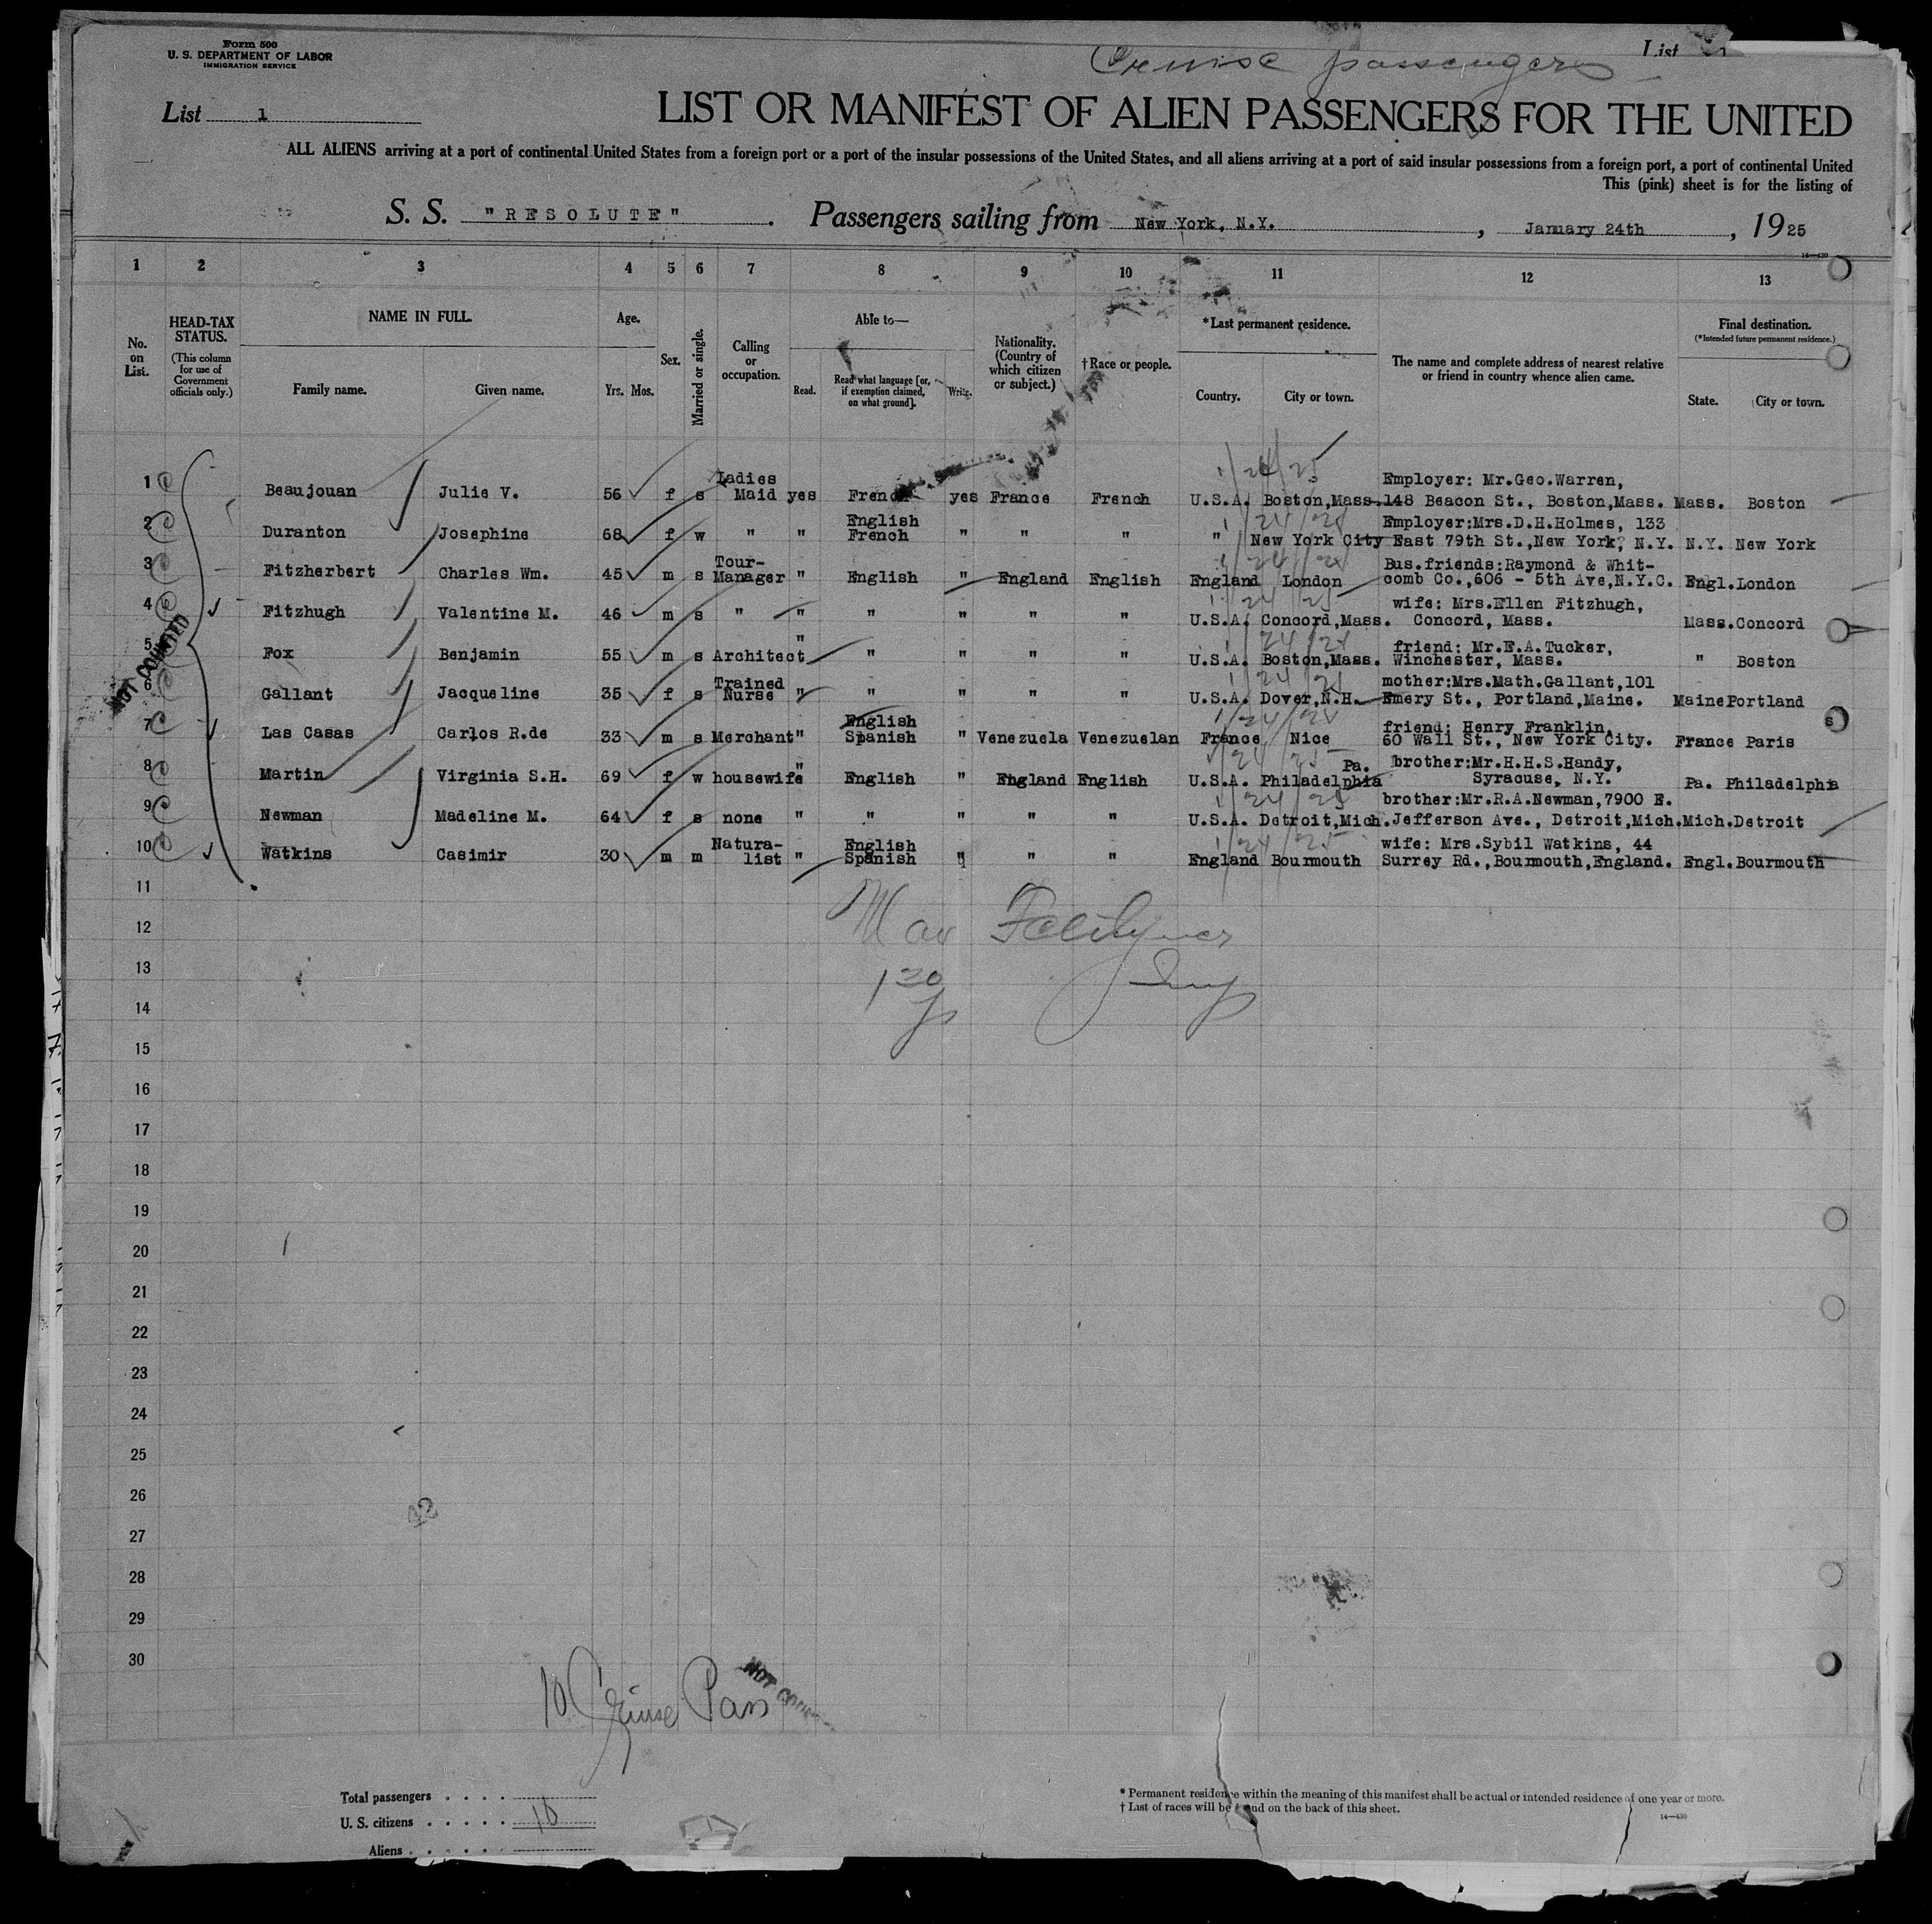 Form 500
U. S. DEPARTMENT OF LABOR
IMMIGRATION SERVICE
Cruise passengers
List
List 1
LIST OR MANIFEST OF ALIEN PASSENGERS FOR THE UNITED
ALL ALIENS arriving at a port of continental United States from a foreign port or a port of the insular possessions of the United States, and all aliens arriving at a port of said insular possessions from a foreign port, a port of continental United
This (pink) sheet is for the listing of
S. S. "RESOLUTE" . Passengers sailing from New York, N.Y. , January 24th , 1925
14—430
1 2 3 4 5 6 7 8 9 10 11 12 13
No. on List.
HEAD-TAX STATUS. (This column for use of Government officials only.)
NAME IN FULL.
Family name. Given name.
Age.
Yrs. Mos.
Sex.
Married or single.
Calling or occupation.
Able to—
Read. Read what language [or, if exemption claimed, on what ground]. Write.
Nationality. (Country of which citizen or subject.)
†Race or people.
*Last permanent residence.
Country. City or town.
The name and complete address of nearest relative or friend in country whence alien came.
Final destination.
(*Intended future permanent residence.)
State. City or town.
NOT COUNTED
1/24/25
Ladies Employer: Mr.Geo.Warren,
1 Beaujouan Julie V. 56 f s Maid yes French yes France French U.S.A. Boston,Mass. 148 Beacon St., Boston,Mass. Mass. Boston
English 1/24/25 Employer:Mrs.D.H.Holmes, 133
2 Duranton Josephine 68 f w " " French " " " " New York City East 79th St.,New York, N.Y. N.Y. New York
Tour- 1/24/25 Bus.friends:Raymond & Whit-
3 Fitzherbert Charles Wm. 45 m s Manager " English " England English England London comb Co.,606 - 5th Ave,N.Y.C. Engl. London
1/24/25 wife: Mrs.Ellen Fitzhugh,
4 Fitzhugh Valentine M. 46 m s " " " " " " U.S.A. Concord,Mass. Concord, Mass. Mass. Concord
1/24/25 friend: Mr.E.A.Tucker,
5 Fox Benjamin 55 m s Architect " " " " " U.S.A. Boston,Mass. Winchester, Mass. " Boston
Trained 1/24/25 mother:Mrs.Math.Gallant,101
6 Gallant Jacqueline 35 f s Nurse " " " " " U.S.A. Dover,N.H. Emery St., Portland,Maine. Maine Portland
English 1/24/25 friend: Henry Franklin,
7 Las Casas Carlos R.de 33 m s Merchant " Spanish " Venezuela Venezuelan France Nice 60 Wall St., New York City. France Paris
s
1/24/25 Pa. brother:Mr.H.H.S.Handy,
8 Martin Virginia S.H. 69 f w housewife " English " England English U.S.A. Philadelphia Syracuse, N.Y. Pa. Philadelphia
1/24/25 brother:Mr.R.A.Newman,7900 E.
9 Newman Madeline M. 64 f s none " " " " " U.S.A. Detroit,Mich. Jefferson Ave., Detroit,Mich. Mich. Detroit
Natura- English 1/24/25 wife: Mrs.Sybil Watkins, 44
10 Watkins Casimir 30 m m list " Spanish " " " England Bourmouth Surrey Rd.,Bourmouth,England. Engl. Bourmouth
11
12
13
130 Insp
14
15
16
17
18
19
20
21
22
23
24
25
26
27
28
29
30
10 Cruise Pass
NOT
Total passengers . . . .
U. S. citizens . . . . . 10
Aliens . . . . . .
* Permanent residence within the meaning of this manifest shall be actual or intended residence of one year or more.
† List of races will be found on the back of this sheet.
14—430